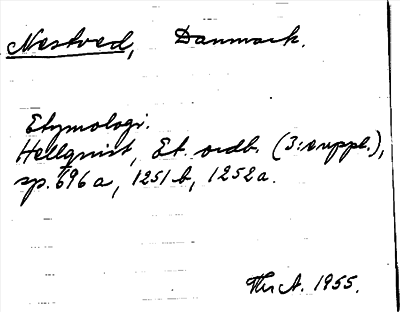 Nestved, Danmark.
Etymologi.
Hellquist, Et. ordb. (3:e uppl.),
sp. 696 a, 1251 b, 1252 a.
Thr A. 1955.